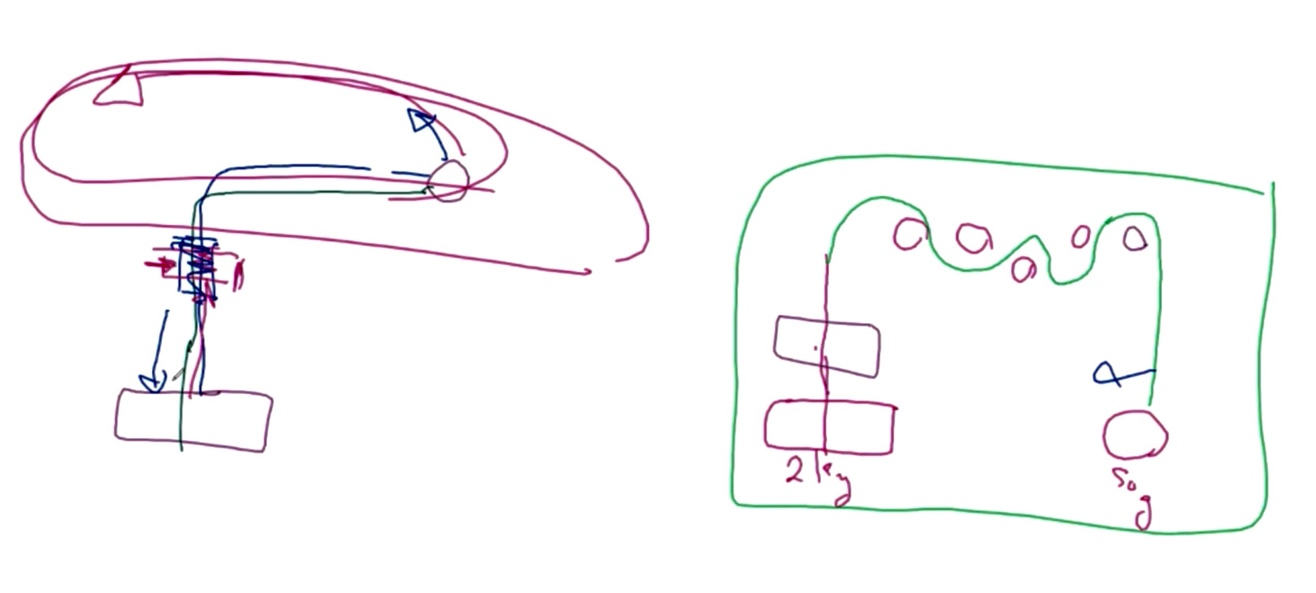 2 kg
50 g